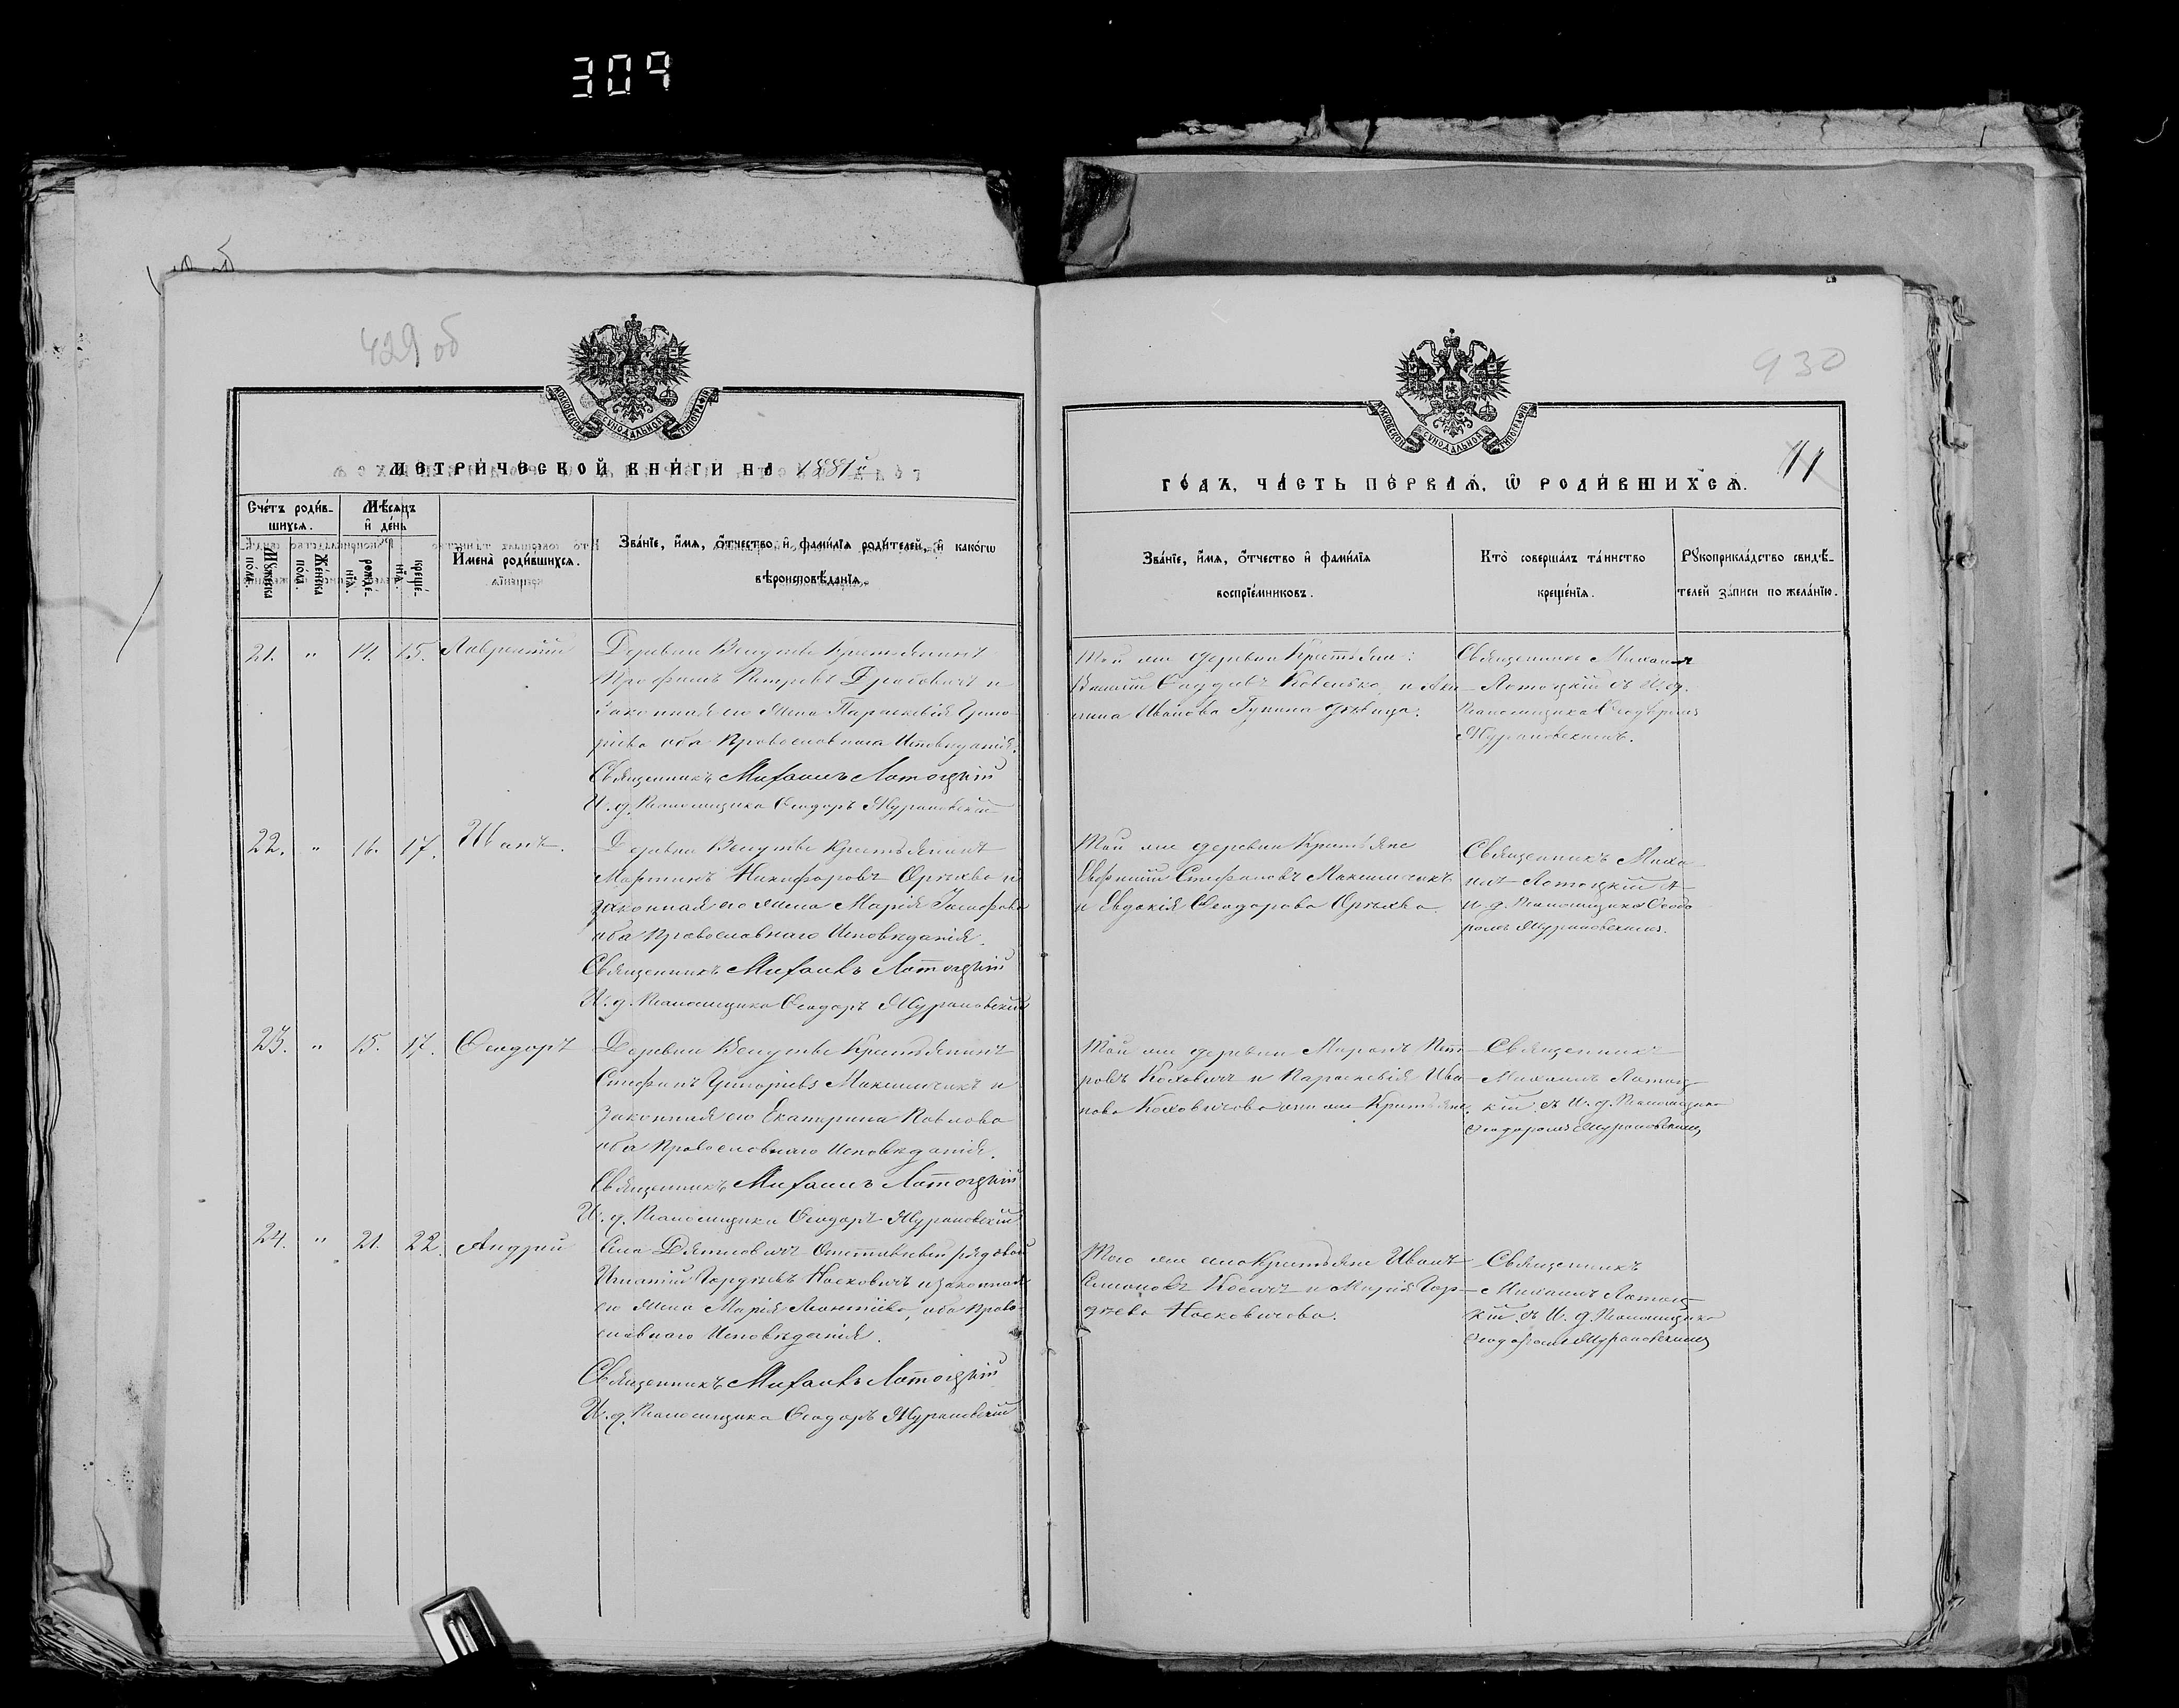 309
429 об
930
МОСКОВСКОЙ СѴНОДАЛЬНОЙ ТИПОГРАФІИ
МОСКОВСКОЙ СѴНОДАЛЬНОЙ ТИПОГРАФІИ
МЕТРИ́ЧЕСКОЙ КНИ́ГИ НА 1881й
ГО́ДЪ, ЧА́СТЬ ПЕ́РВАѦ, Ѡ РОДИ́ВШИХСѦ.
11
Сче́тъ роди́в-
шихсѧ.
Мѣ́сѧцъ
и де́нь
Мꙋ́жеска по́ла.
Же́нска по́ла.
рожде́-нїѧ.
креще́-нїѧ.
И҆мена̀ роди́вшихсѧ.
Зва́нїе, и҆́мѧ, ѻ҆́тчество и҆ фамі́лїѧ роди́телей, и҆ како́гѡ
вѣроисповѣ́данїѧ.
Зва́нїе, и҆́мѧ, ѻ҆́тчество и҆ фамі́лїѧ
воспрїе́мниковъ.
Кто̀ соверша́лъ та́инство
креще́нїѧ.
Рꙋкоприкла́дство свидѣ́-
телей за́писи по жела́нїю.
21. " 14. 15. Лаврентій
Деревни Крестьянинъ
Трофимъ Петровъ Драбовичъ и
законная его жена Параскевія Григо-
ріева оба Православнаго Исповѣданія.
Священникъ Михаилъ Лотоцкій
И. д. Псаломщика Ѳеодоръ Журановскій
Той же деревни Крестьяне:
Ковенько и Аки-
лина Иванова дѣвица.
Священникъ Михаилъ
Лотоцкій съ И. д.
Псаломщика Ѳеодоромъ
Журановскимъ.
22. " 16. 17. Иванъ.
Деревни Крестьянинъ
Мартинъ Никифоровъ Орѣхво и
законная его жена Марія Іосифова
оба Православнаго Исповѣданія.
Священникъ Михаилъ Лотоцкій
И. д. Псаломщика Ѳеодоръ Журановскій
Той же деревни Крестьяне
Евфимій Стефановъ Максимчикъ
и Евдокія Ѳеодорова Орѣхва.
Священникъ Миха-
илъ Лотоцкій съ
И. д. Псаломщика Ѳеодо-
ромъ Журановскимъ.
23. " 15. 17. Ѳеодоръ
Деревни Крестьянинъ
Стефанъ Григоріевъ Максимчикъ и
законная его Екатерина Павлова
оба Православнаго Исповѣданія.
Священникъ Михаилъ Лотоцкій
И. д. Псаломщика Ѳеодоръ Журановскій
Той же деревни Миронъ Пет-
ровъ Коховичъ и Параскевія Ива-
нова Коховичова они же Крестьяне.
Священникъ
Михаилъ Лотоц-
кій съ И. д. Псаломщика
Ѳеодоромъ Журановскимъ
24. " 21. 22. Андрей
Села Дятловичъ Отставный рядовой
Игнатій Гордѣевъ Носковичъ и законная
его жена Марія Леонтіева, оба Право-
славнаго Исповѣданія.
Священникъ Михаилъ Лотоцкій
И. д. Псаломщика Ѳеодоръ Журановскій
Того же села Крестьяне Иванъ
Семеновъ и Марія Гор-
дѣева Носковичова.
Священникъ
Михаилъ Лотоц-
кій съ И. д. Псаломщика
Ѳеодоромъ Журановскимъ